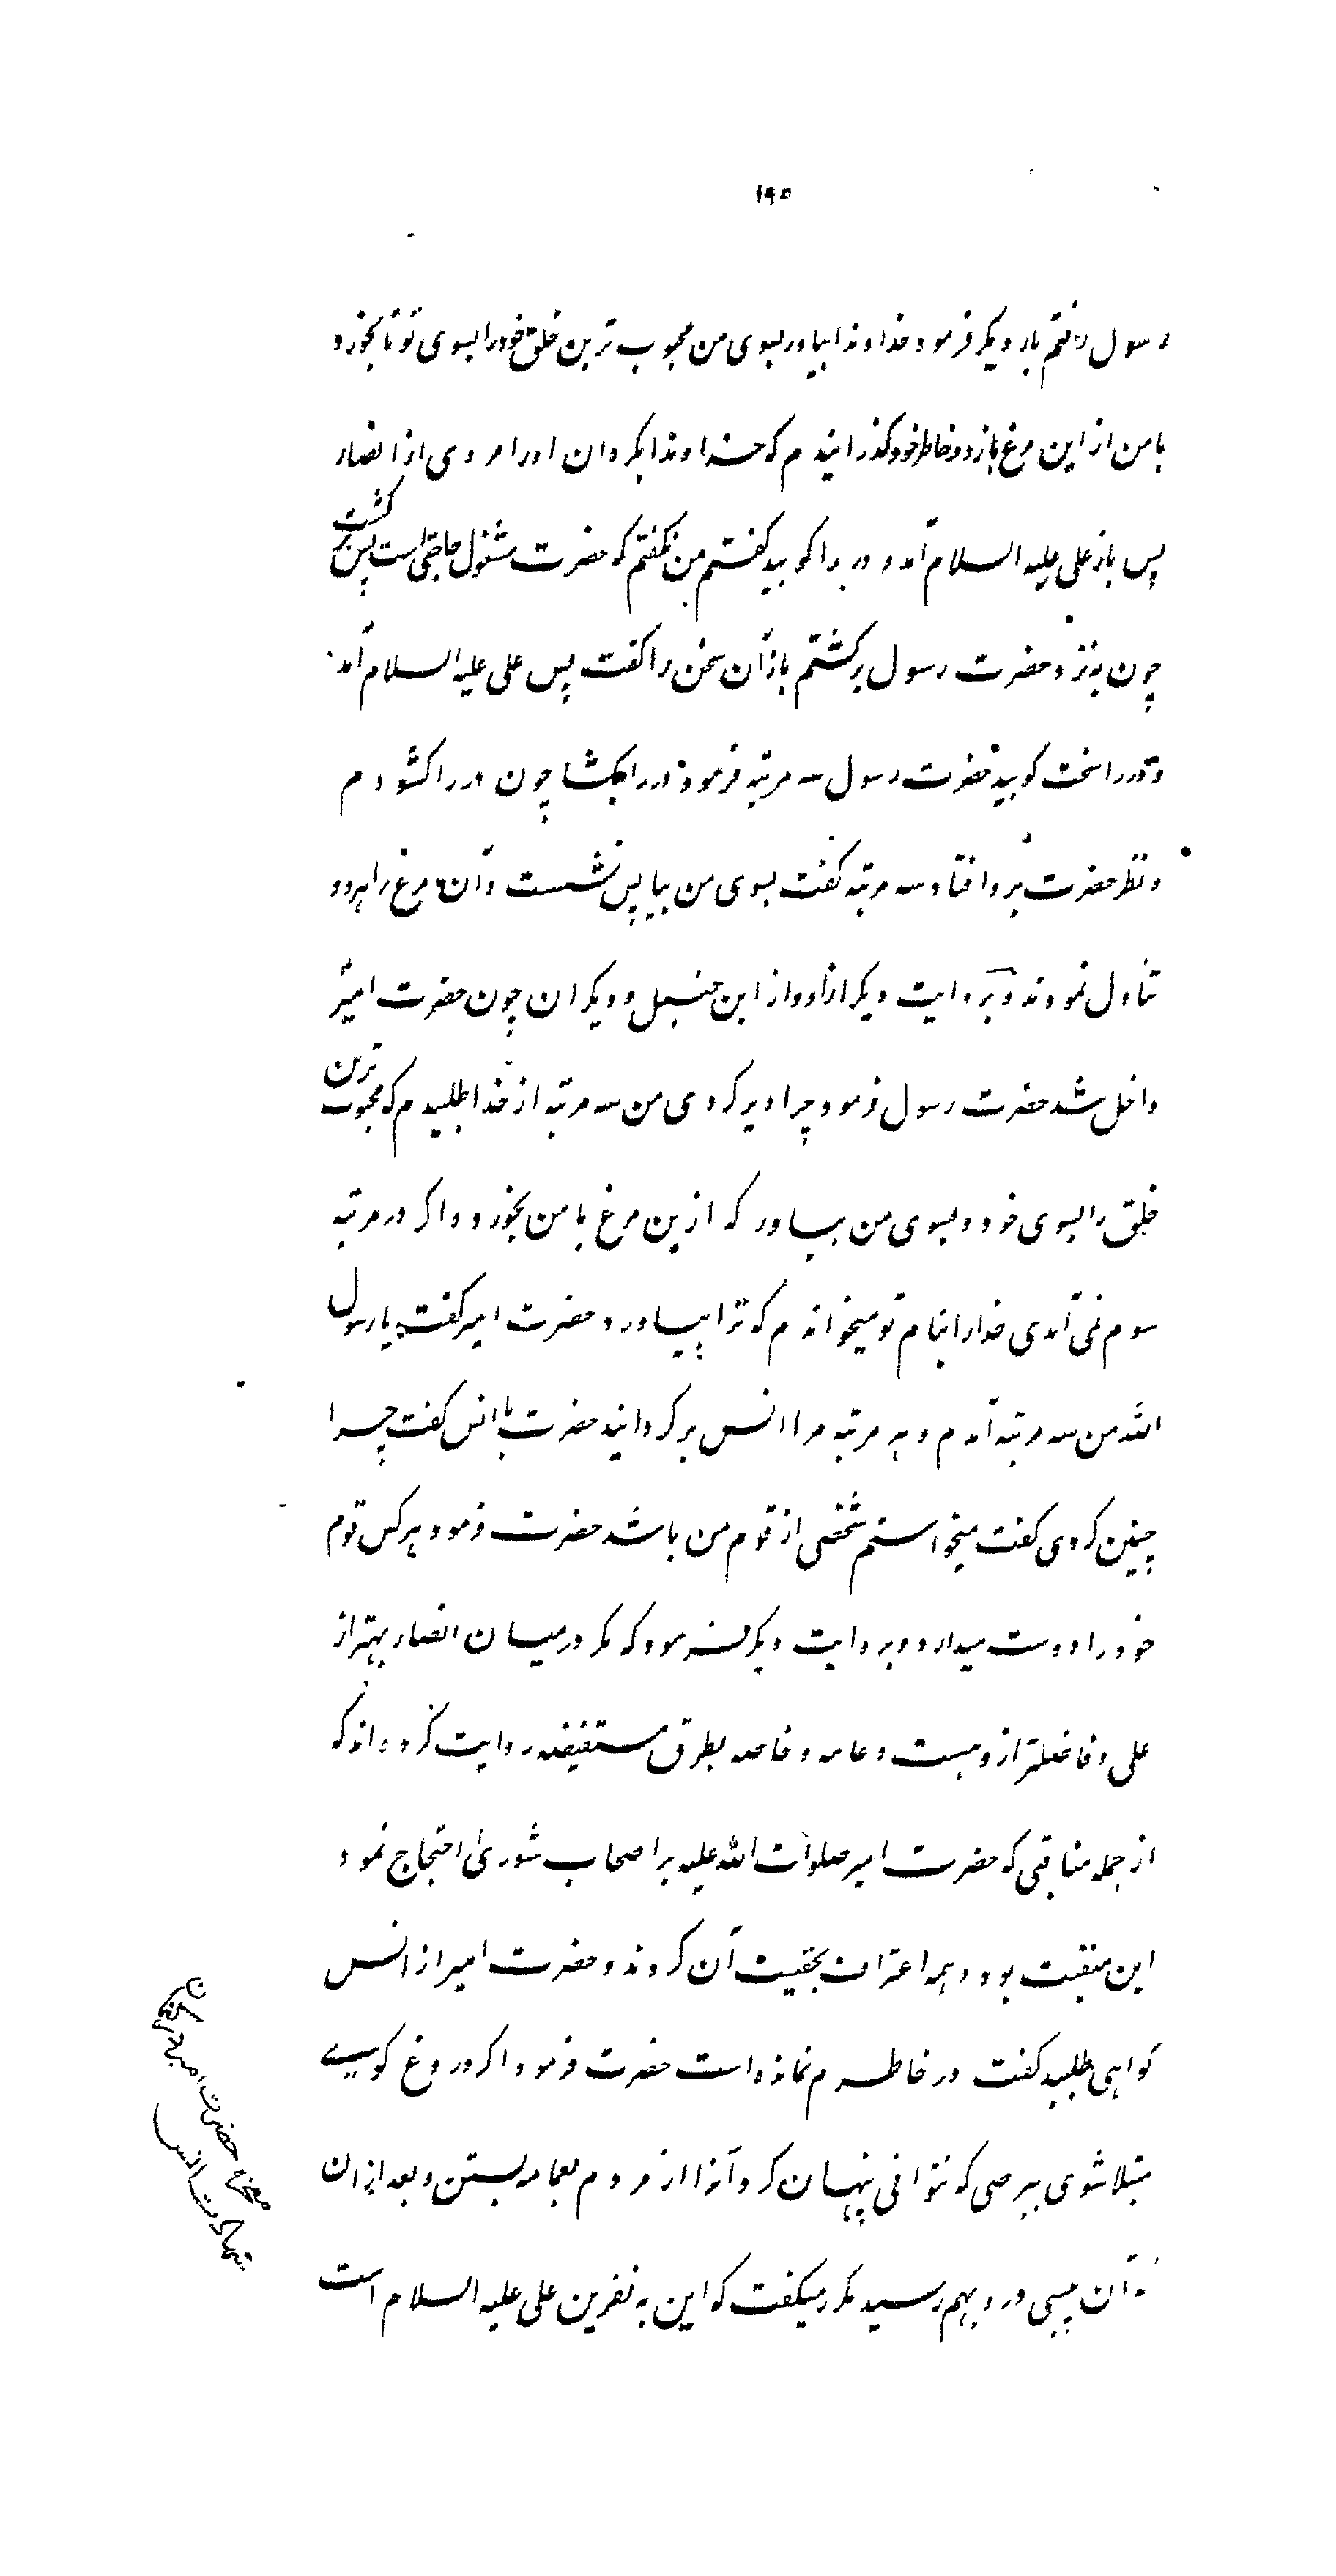 ۱۹۵
رسول رفتم بار دیکر فرمود خداوندا بیاور بسوی من محبوب ترین خلق خود را بسوی تو تا بخورد
با من از این مرغ باز در خاطر خود کذرانیدم که خداوندا بکردان او را مردی از انصار
پس باز علی علیه السلام آمد و در را کوبید کفتم من نکفتم که حضرت مشغول حاجتی است پس برکشت
چون به نزد حضرت رسول برکشتم باز آن سخن را کفت پس علی علیه السلام آمد
و در را سخت کوبید حضرت رسول سه مرتبه فرمود در را بکشا چون در را کشودم
و نظر حضرت بر و افتاد سه مرتبه کفت بسوی من بیا پس نشست و آن مرغ را هر دو
تناول نمودند و بروایت دیکر از او و از ابن حنبل و دیکران چون حضرت امیر
داخل شد حضرت رسول فرمود چرا دیر کردی من سه مرتبه از خدا طلبیدم که محبوب ترین
خلق را بسوی خود و بسوی من بیاورد که ازین مرغ با من بخورد و اکر در مرتبه
سوم نمی آمدی خدا را بنام تو میخواندم که ترا بیاورد حضرت امیر کفت یا رسول
الله من سه مرتبه آمدم و هر مرتبه مرا انس بر کردانید حضرت با انس کفت چرا
چنین کردی کفت میخواستم شخصی از قوم من باشد حضرت فرمود هر کس قوم
خود را دوست میدارد و بروایت دیکر فرمود که مکر در میان انصار بهتر از
علی و فاضلتر از و هست و عامه و خاصه بطرق مستفیضه روایت کرده اند که
از جمله مناقبی که حضرت امیر صلوات الله علیه بر اصحاب شوری احتجاج نمود
این منقبت بود و همه اعتراف بحقیت آن کردند و حضرت امیر از انس
کواهی طلبید کفت در خاطرم نمانده است حضرت فرمود اکر دروغ کویی
مبتلا شوی ببرصی که نتوانی پنهان کرد آنرا از مردم بعمامه بستن و بعد از ان
آن پیسی در و بهم رسید مکرر میکفت که این به نفرین علی علیه السلام است
معجزه حضرت امیر در کتمان
شهادت انس